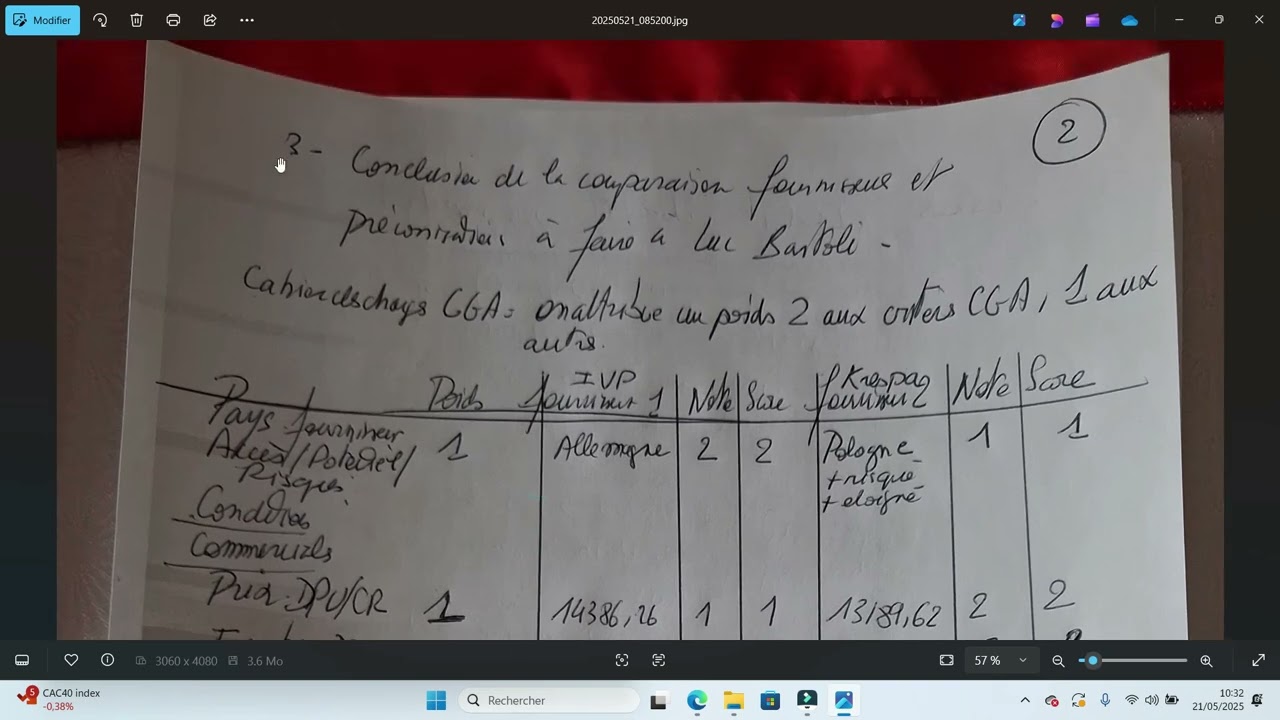 Modifier
20250521_085200.jpg
2
3 - Conclusion de la comparaison fournisseur et
préconisation à faire à Luc Bartoli -
Cahier des charges CGA = on attribue un poids 2 aux critères CGA, 1 aux
autres.
Poids IVP fournisseur 1 Note Score Krespag fournisseur 2 Note Score
Pays fournisseur
Accès/Potentiel/ 1 Allemagne 2 2 Pologne 1 1
Risques. + risque
+ eloigné
Conditions
Commerciales
Prix DPU/CR 1 14386,26 1 1 13189,62 2 2
3060 x 4080 3.6 Mo 57 %
CAC40 index
-0,38%
5
Rechercher
10:32
21/05/2025